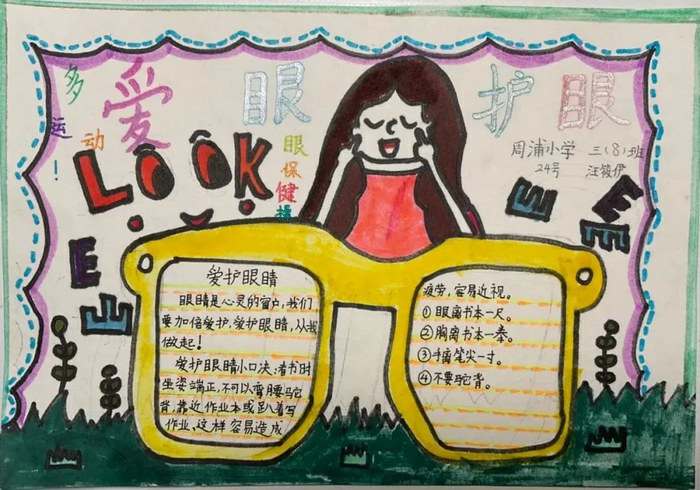 爱眼护眼
多运动!
LOOK
眼保健操
周浦小学 三(8)班
24号 汪筱伊
E
E
E
E
E
爱护眼睛
眼睛是心灵的窗户,我们
要加倍爱护,爱护眼睛,从我
做起!
爱护眼睛小口决:看书时
坐姿端正,不可以弯腰驼
背,靠近作业本或趴着写
作业、这样容易造成
疲劳,容易近视。
①眼离书本一尺。
②胸离书本一拳。
③手离笔尖一寸。
④不要驼背。
E
E
E